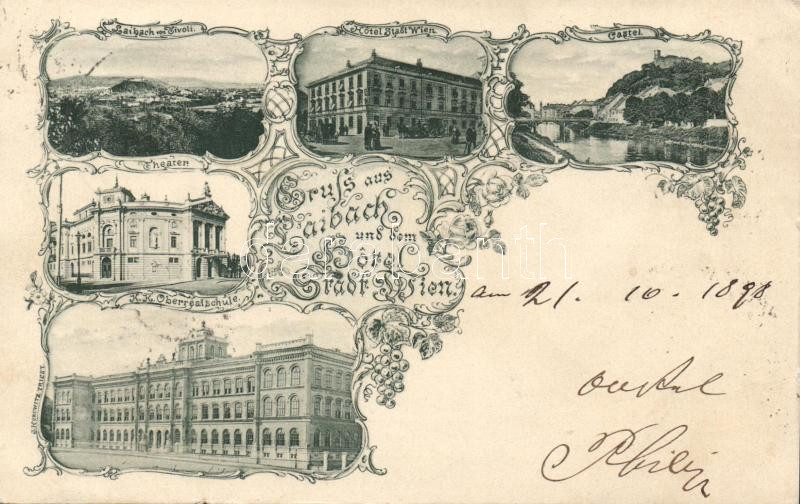 Laibach von Tivoli.
Hôtel Stadt Wien
Castel
Theater
Gruß aus
Laibach
und dem
Hôtel
Stadt Wien
K.K. Oberrealschule.
am 21. 10. 1898
darabanth